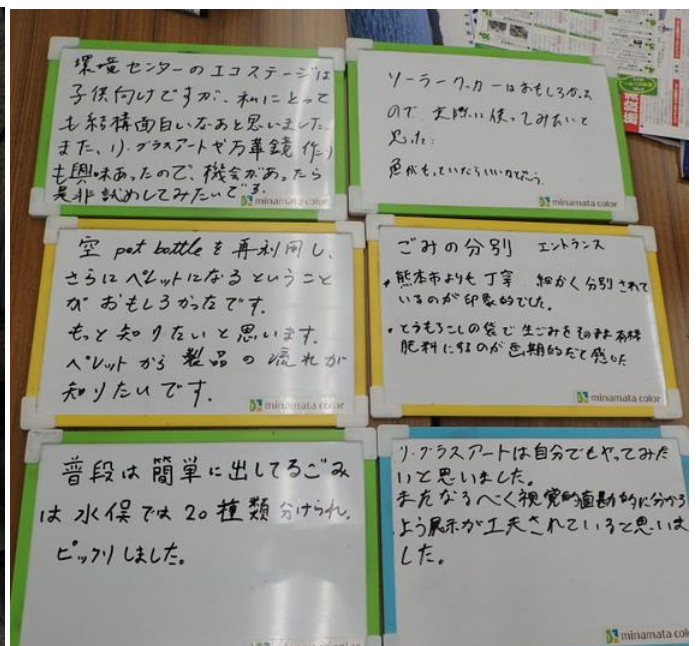 環境センターのエコステージは
子供向けですが、私にとって
も結構面白いなあと思いました。
また、リ・グラスアートや万華鏡作り
も興味あったので、機会があったら
是非試めしてみたいです。
minamata color
ソーラークッカーはおもしろかった
ので実際に使ってみたいと
思った。
minamata color
空 pet bottle を再利用し、
さらにペレットになるということ
がおもしろかったです。
もっと知りたいと思います。
ペレットから製品の流れが
知りたいです。
minamata color
ごみの分別 エントランス
・熊本市よりも丁寧 細かく分別されて
いるのが印象的でした。
・とうもろこしの袋で生ごみをそのまま有機
肥料にするのが画期的だと感じた
minamata color
普段は簡単に出してるごみ
は水俣では20種類分けられ、
ビックリしました。
リ・グラスアートは自分でもやってみた
いと思いました。
またなるべく視覚的直勘的に分かる
よう展示が工夫されていると思いま
した。
minamata color